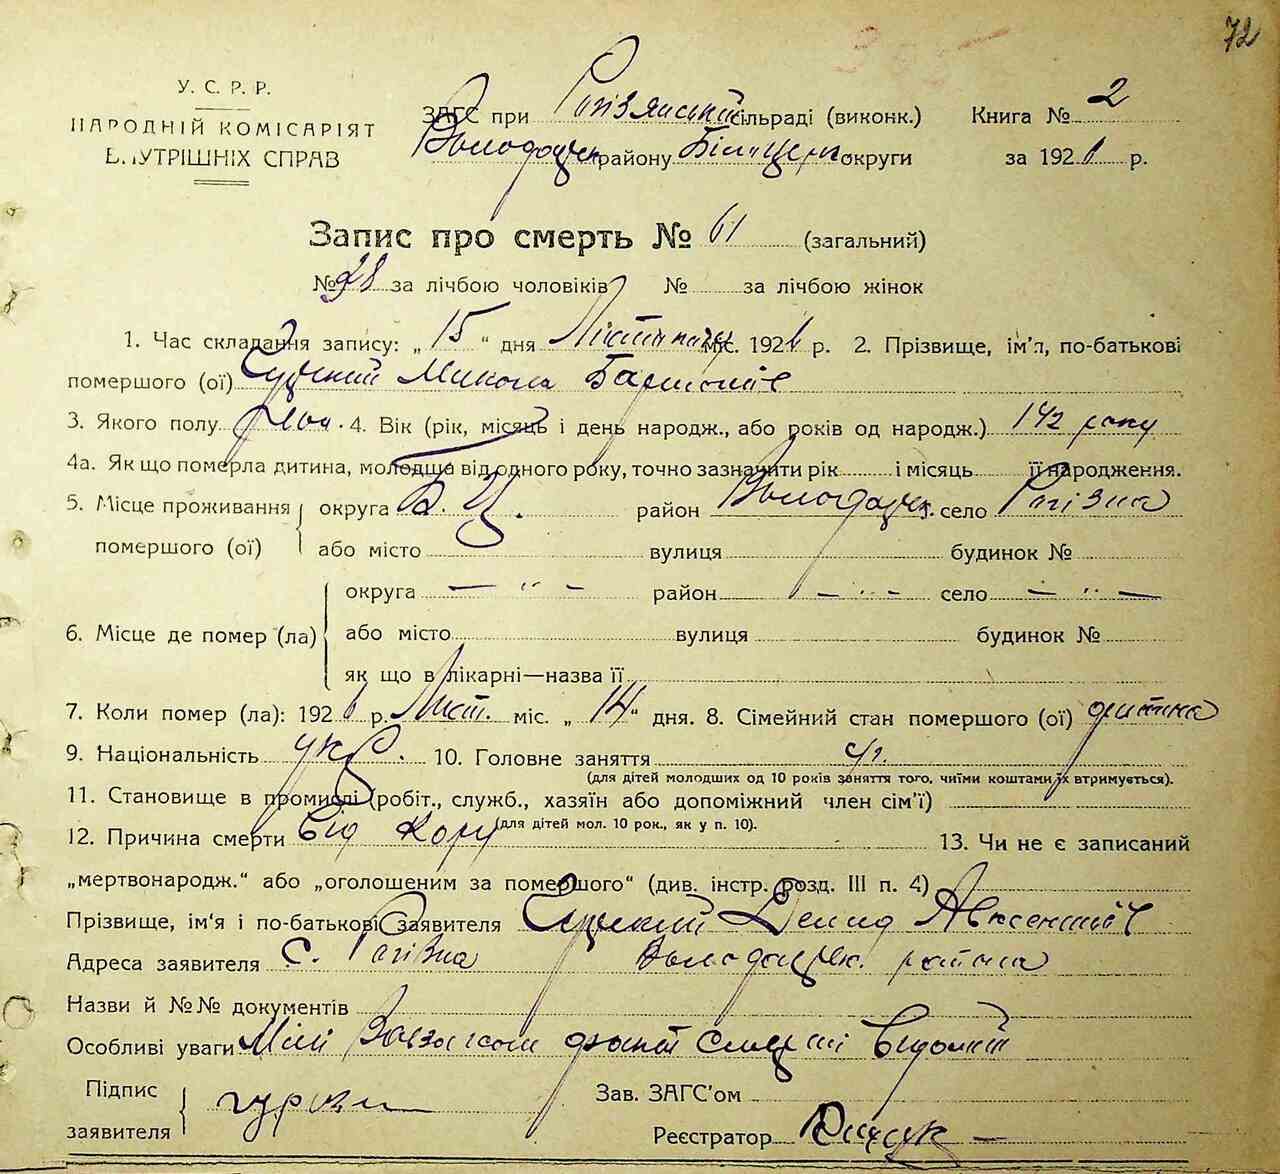 72
У. С. Р. Р.
НАРОДНІЙ КОМІСАРІЯТ
ВНУТРІШНІХ СПРАВ
ЗАГС при Рогізянській сільраді (виконк.) Книга № 2
Володарськ району Білоцерк округи за 1926 р.
Запис про смерть № 61 (загальний)
№ 28 за лічбою чоловіків № за лічбою жінок
1. Час складання запису: „ 15 “ дня Листопаду міс. 1926 р. 2. Прізвище, ім'я, по-батькові
помершого (ої) Микола
3. Якого полу чол. 4. Вік (рік, місяць і день народж., або років од народж.) 1 1/2 року
4а. Як що померла дитина, молодща від одного року, точно зазначити рік і місяць її народження.
5. Місце проживання округа Б. Ц. район Володарськ. село Рогізна
помершого (ої) або місто вулиця будинок №
округа — " — район — " — село — " —
6. Місце де помер (ла) або місто вулиця будинок №
як що в лікарні—назва її
7. Коли помер (ла): 1926 р. Лист. міс. „ 14 “ дня. 8. Сімейний стан помершого (ої) дитина
9. Національність укр. 10. Головне заняття с/г.
(для дітей молодших од 10 років заняття того, чиїми коштами їх втримується).
11. Становище в промислі (робіт., служб., хазяїн або допоміжний член сім'ї)
(для дітей мол. 10 рок., як у п. 10).
12. Причина смерти Від кору 13. Чи не є записаний
„мертвонародж.“ або „оголошеним за помершого“ (див. інстр. розд. III п. 4)
Прізвище, ім'я і по-батькові заявителя Демид Авксентієв
Адреса заявителя с. Рогізна Володарськ. району
Назви й №№ документів
Особливі уваги Мені Завзагсом факт смерті відомий
Підпис
заявителя
Зав. ЗАГС'ом
Реєстратор